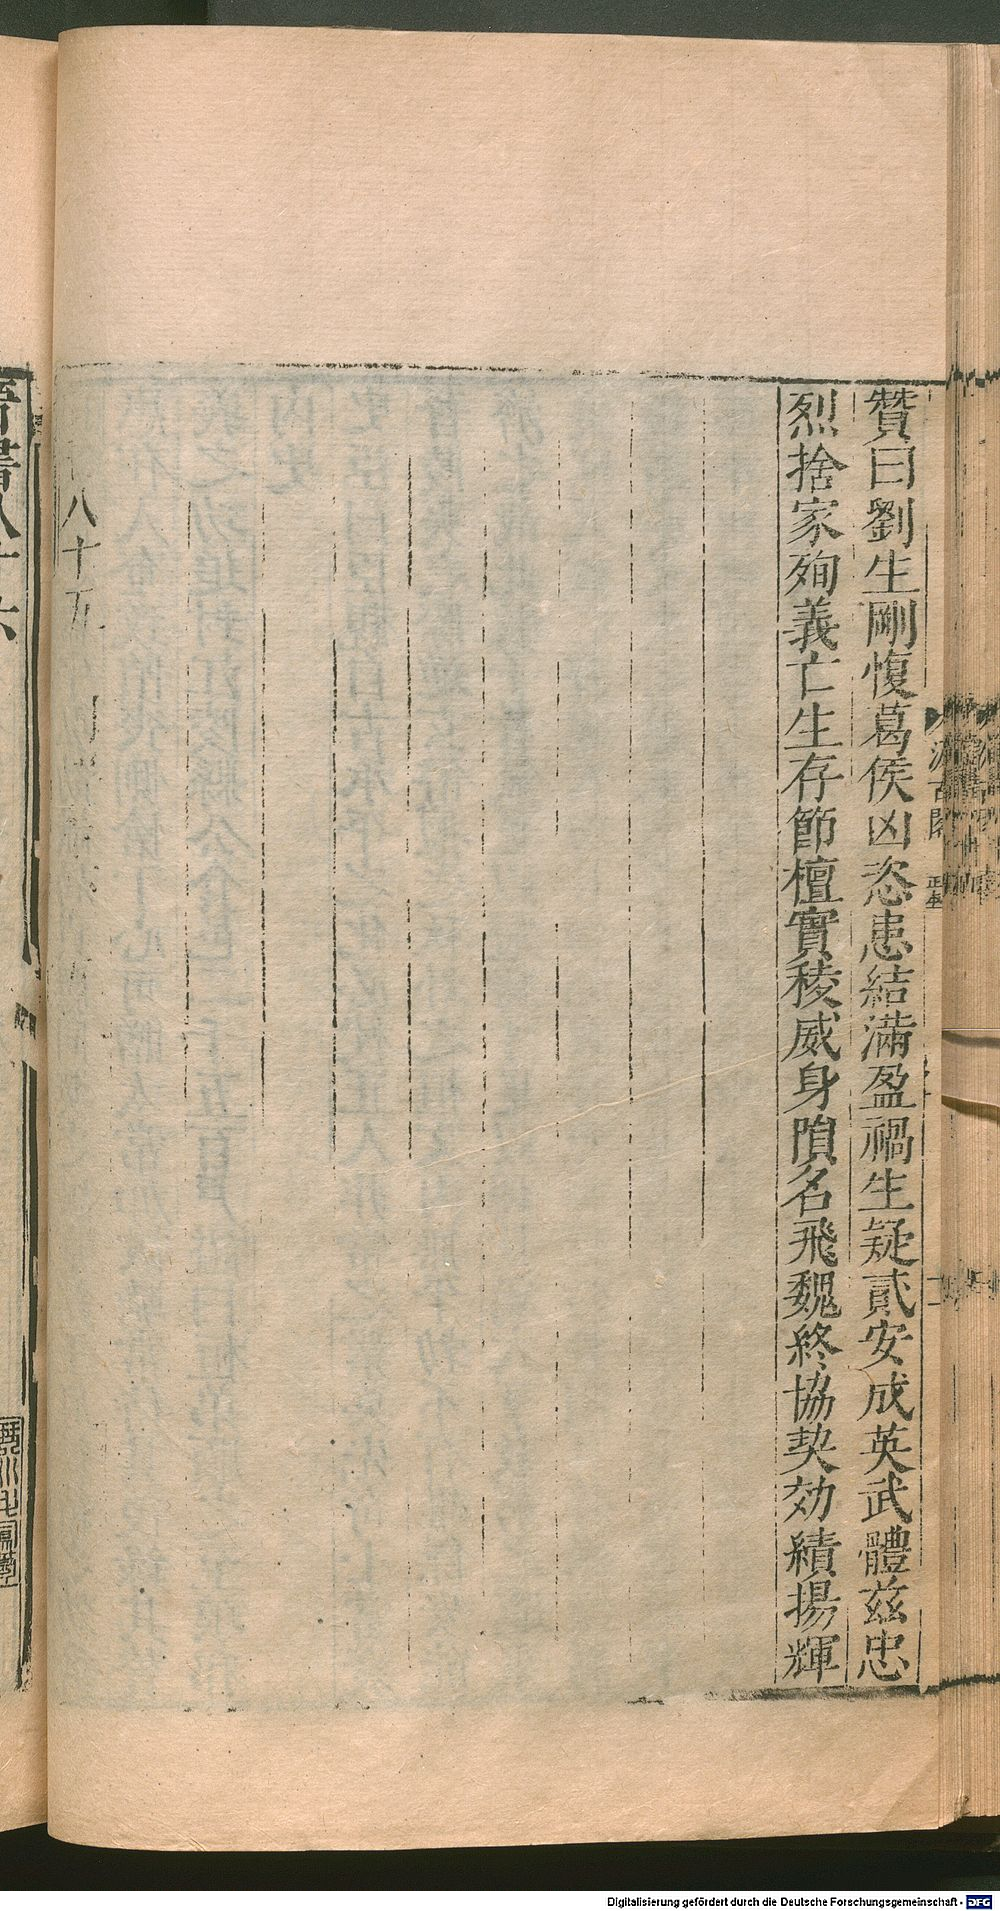 贊曰劉生剛愎葛侯凶恣患結滿盈禍生疑貳安成英武體兹忠
烈捨家殉義亡生存節檀實稜威身隕名飛魏終協契効績揚輝
八十五
汲古閣
晉書八十六
Digitalisierung gefördert durch die Deutsche Forschungsgemeinschaft - DFG